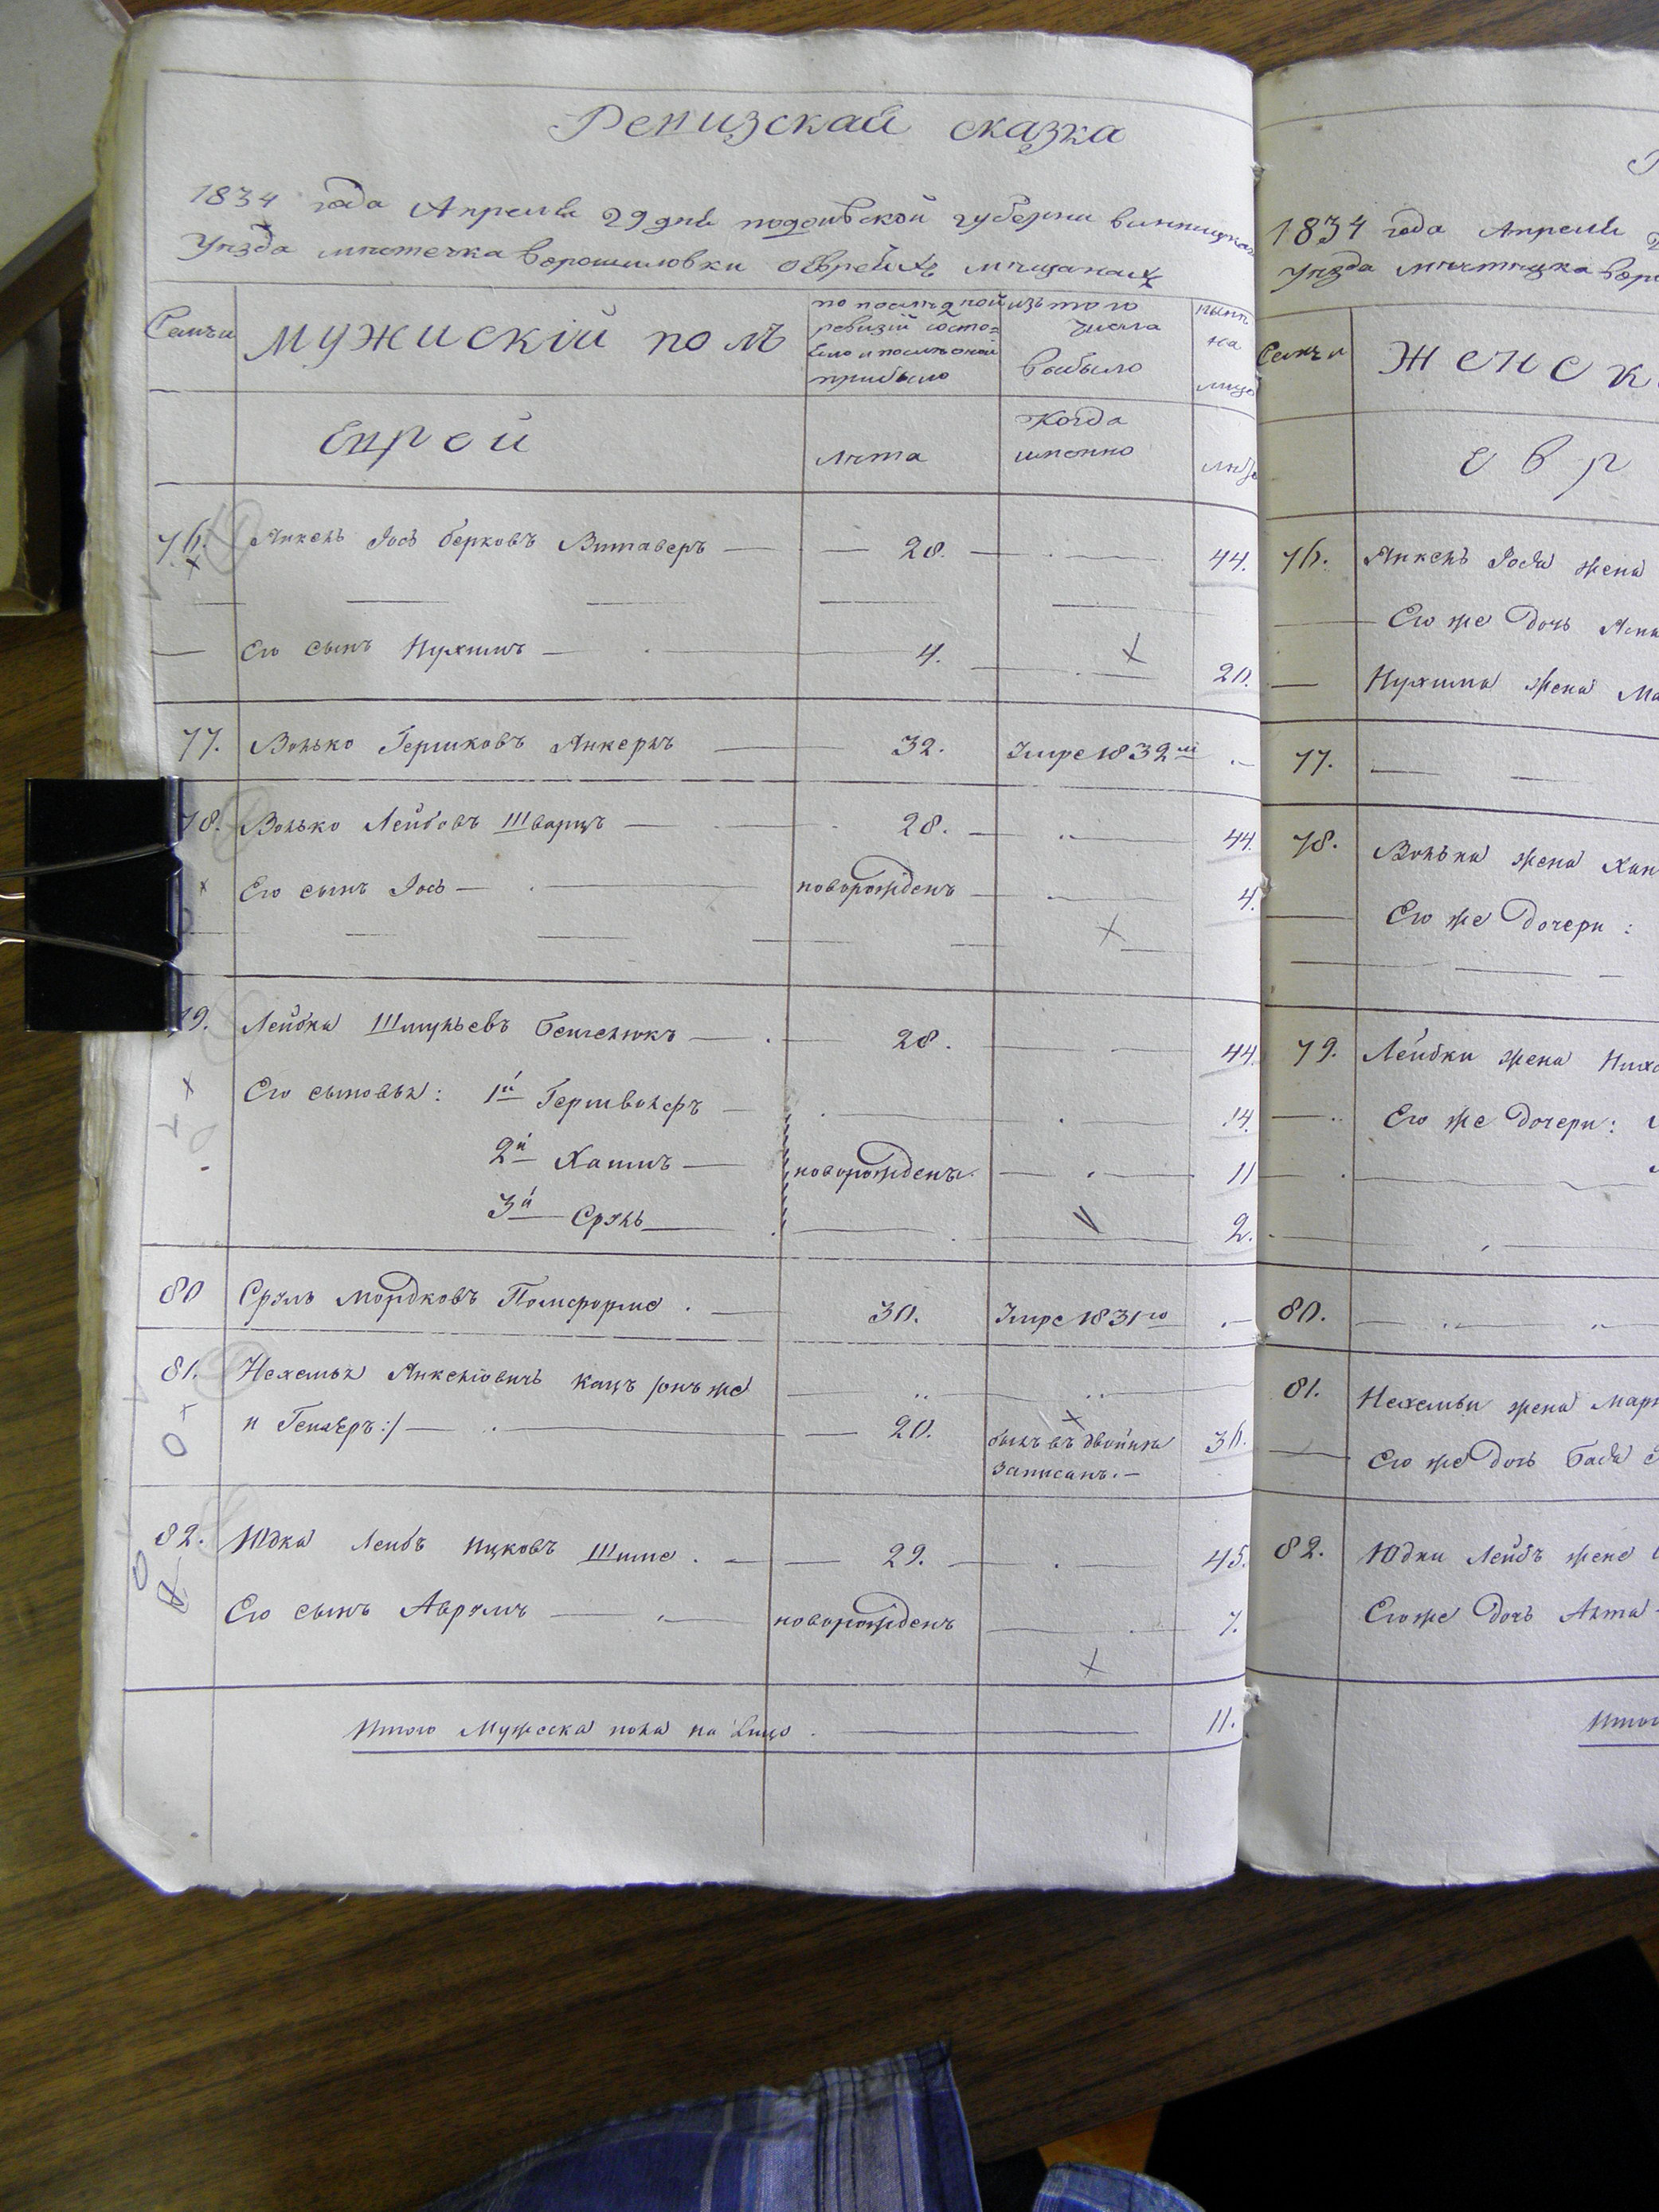 Ревизская сказка
1834 года Апреля 29 дня подольской губерни винницкаго
Уезда местечка Ворошиловки о евреяхъ мещанахъ
Семьи
мужискій полъ
по последней
ревизіи состо=
яло и после оной
прибыло
изъ того
числа
выбыло
ныне
на
лицо
Еврей
лета
Когда
именно
лета
76. Янкель Іось Берковъ Витаверъ — 28. — 44.
— Его сынъ Нухимъ — 4. — 20.
77. Волько Гершковъ Анкеръ — 32. Умре 1832 —
78. Волько Лейбовъ Шварцъ — 28. — 44.
Его сынъ Іось — новорожденъ — 4.
79. Лейбка Шмульевъ — 28. — 44
Его сыновья: 1й Гершволфъ — 14.
2й Хаимъ — новорождены — 11
3й Сруль — 2.
80 Сруль Мордковъ — 30. Умре 1831го —
81. Нехемья Янкеліовичъ Кацъ /онъ же
и :/ — 20. былъ въ двойне 36.
записанъ. —
82. Юдка Лейбъ Ицковъ — 29. — 45.
Его сынъ Аврумъ — новорожденъ — 7.
Итого Мужеска пола на Лицо. — 11.
1834 года Апреля
Уезда местечка
Семьи
Женск
евр
76. Янкель Іося жена
Его же дочь
— Нухима жена
77. — —
78. Волька жена
Его же дочери:
79. Лейбки жена
— Его же дочери:
80. —
81. Нехемьи жена
Его же дочь Бася
82. Юдки Лейбъ жена
Его же дочь